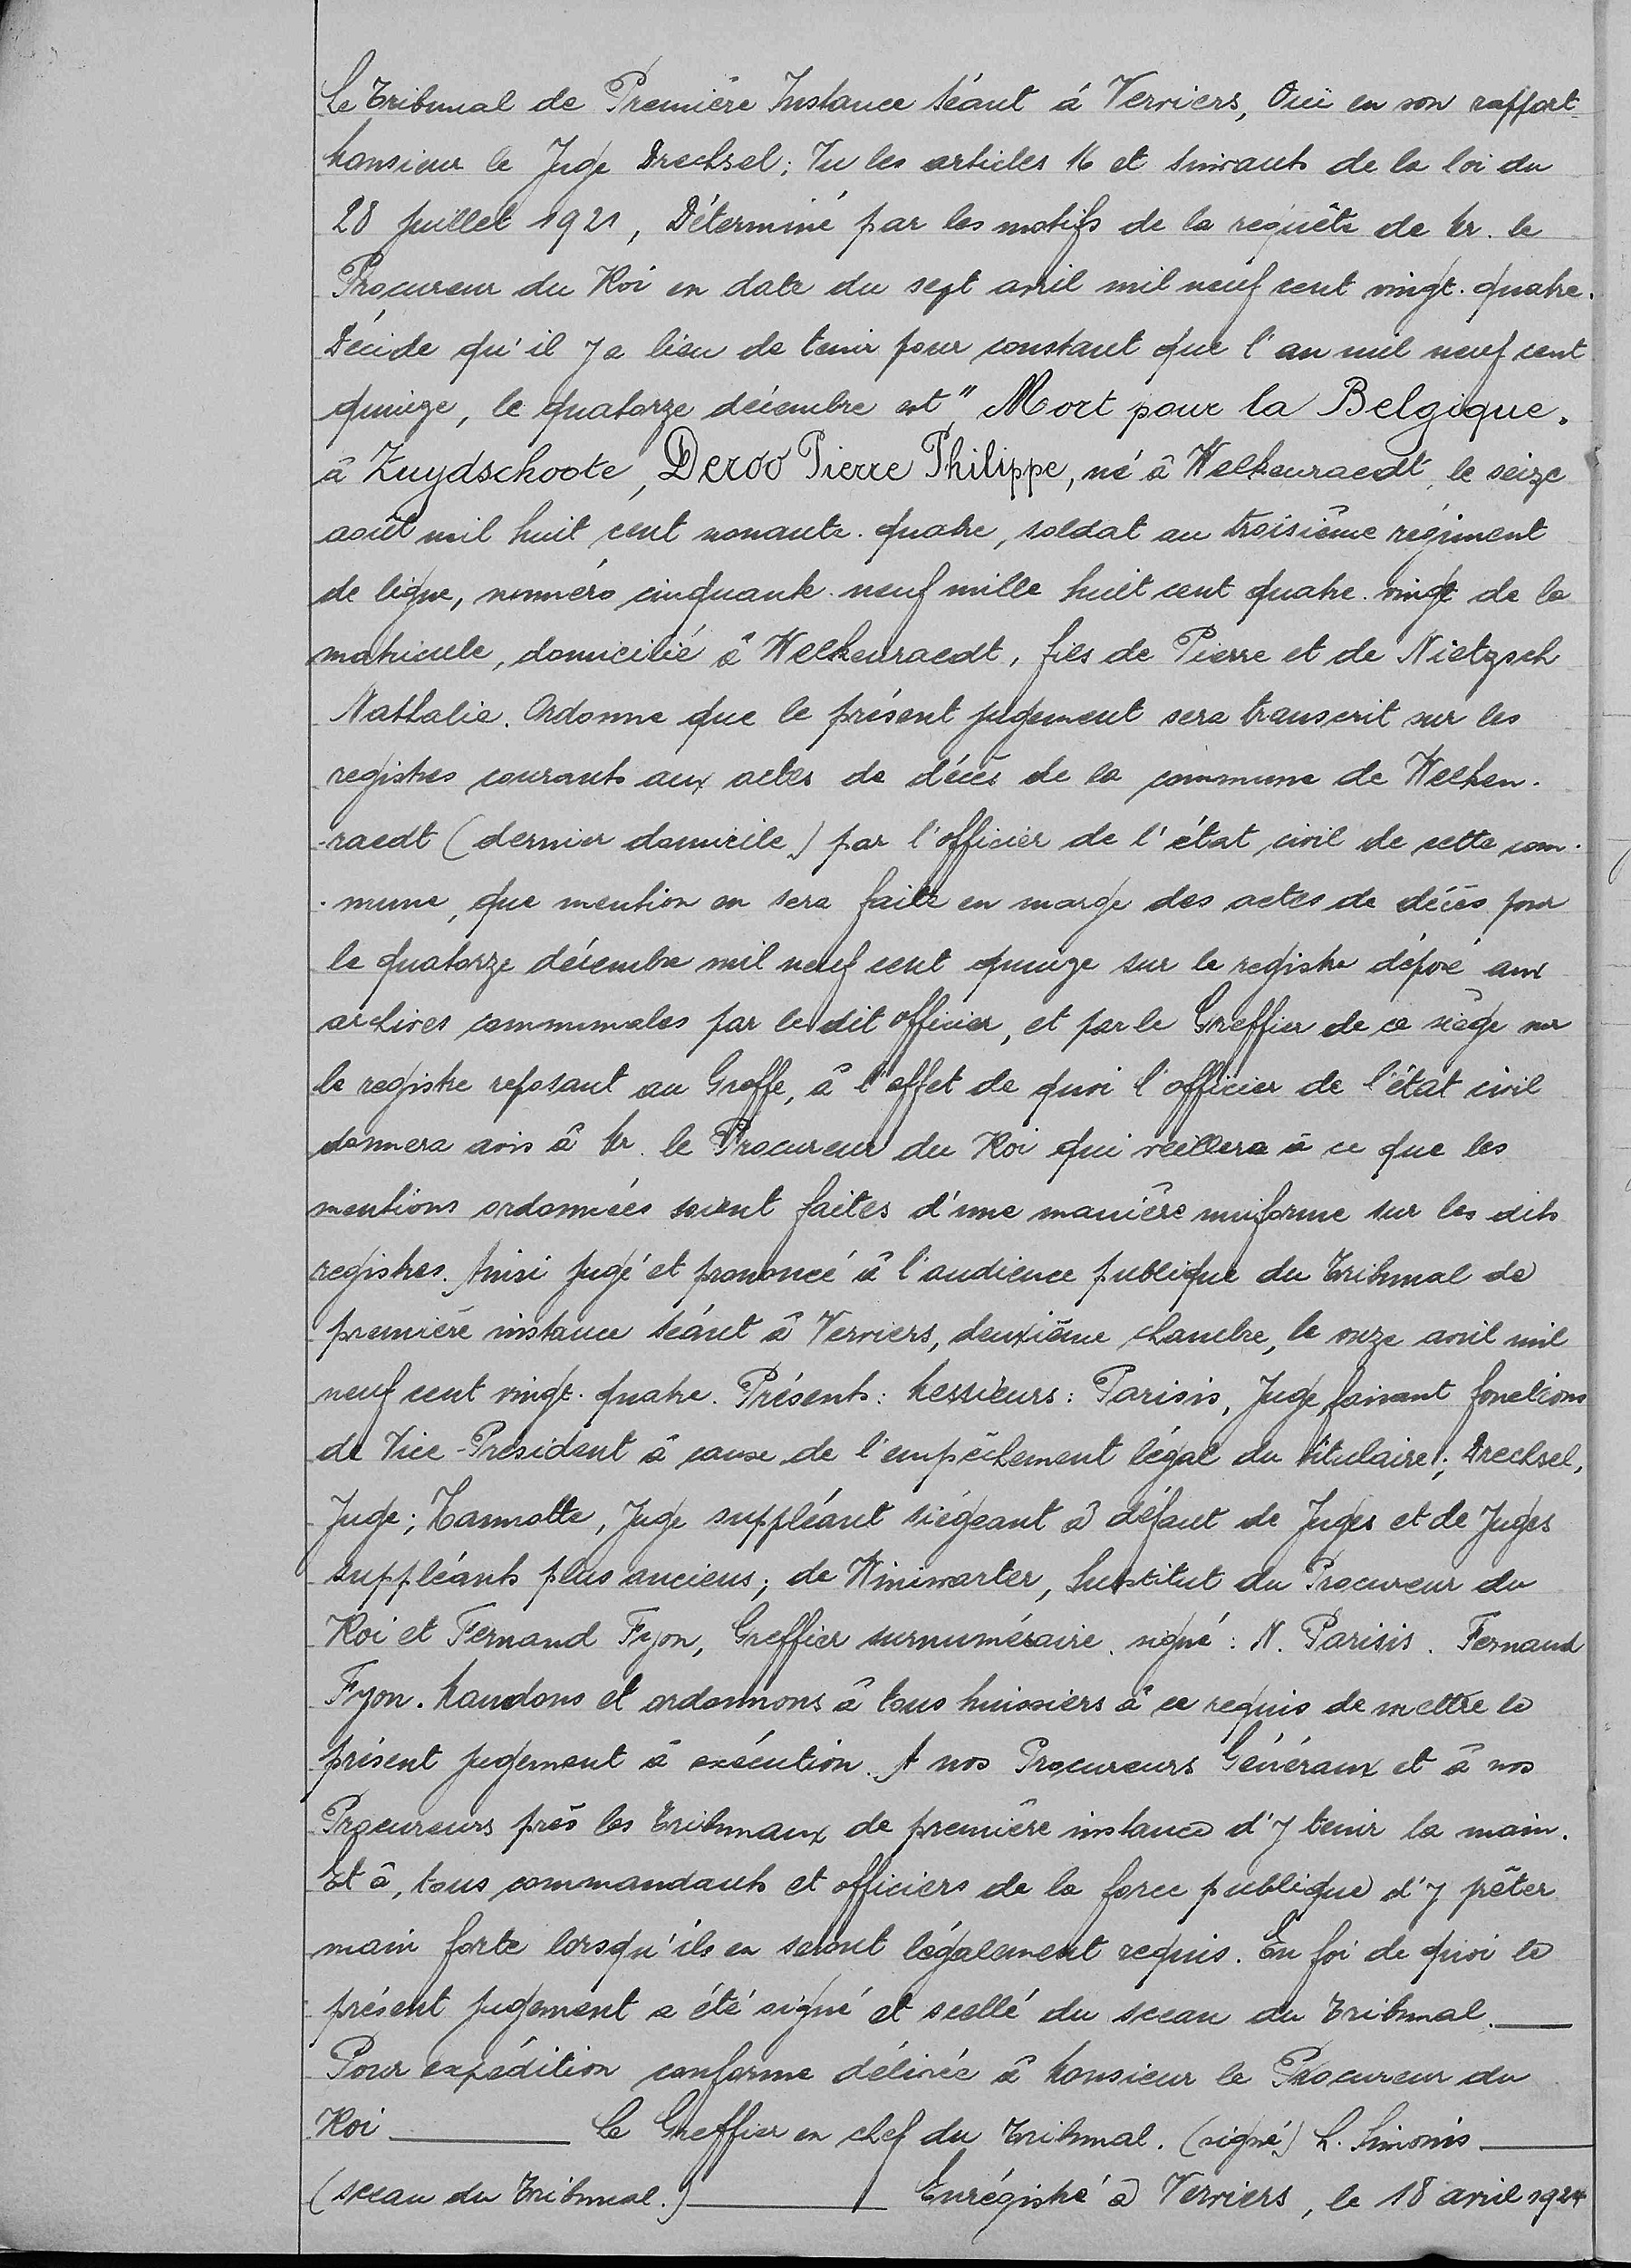 Le Tribunal de Première Instance séant à Verviers, Ouï en son rapport
Monsieur le Juge Drechsel; Vu les articles 16 et suivants de la loi du
28 juillet 1921, Déterminé par les motifs de la requête de Mr. le
Procureur du Roi en date du sept avril mil neuf cent vingt-quatre.
Décide qu'il y a lieu de tenir pour constant que l'an mil neuf cent
quinze, le quatorze décembre est "Mort pour la Belgique"
à Zuydschoote, Deroo Pierre Philippe, né à Welkenraedt, le seize
août mil huit cent nonante-quatre, soldat au troisième régiment
de ligne, numéro cinquante-neuf mille huit cent quatre-vingt de la
matricule, domicilié à Welkenraedt, fils de Pierre et de Nietzsch
Nathalie. Ordonne que le présent jugement sera transcrit sur les
registres courants aux actes de décès de la commune de Welken-
-raedt (dernier domicile) par l'officier de l'état civil de cette com-
-mune, que mention en sera faite en marge des actes de décès pour
le quatorze décembre mil neuf cent quinze sur le registre déposé aux
archives communales par le dit officier, et par le Greffier de ce siège sur
le registre reposant au Greffe, à l'effet de quoi l'officier de l'état civil
donnera avis à Mr. le Procureur du Roi qui veillera à ce que les
mentions ordonnées soient faites d'une manière uniforme sur les dits
registres. Ainsi jugé et prononcé à l'audience publique du Tribunal de
première instance séant à Verviers, deuxième chambre, le onze avril mil
neuf cent vingt-quatre. Présents: Messieurs: Parisis, Juge faisant fonctions
de Vice-Président à cause de l'empêchement légal du titulaire; Drechsel,
Juge; Hannotte, Juge suppléant siégeant à défaut de Juges et de Juges
suppléants plus anciens; de Winiwarter, Substitut du Procureur du
Roi et Fernand Fyon, Greffier surnuméraire. signé: N. Parisis. Fernand
Fyon. Mandons et ordonnons à tous huissiers à ce requis de mettre le
présent jugement à exécution. A nos Procureurs Généraux et à nos
Procureurs près les Tribunaux de première instance d'y tenir la main.
Et à, tous commandants et officiers de la force publique d'y prêter
main forte lorsqu'ils en seront légalement requis. En foi de quoi le
présent jugement a été signé et scellé du sceau du Tribunal.
Pour expédition conforme délivrée à Monsieur le Procureur du
Roi Le Greffier en chef du Tribunal. (signé) L. Simonis
(sceau du Tribunal.) Enrégistré à Verviers, le 18 avril 1924